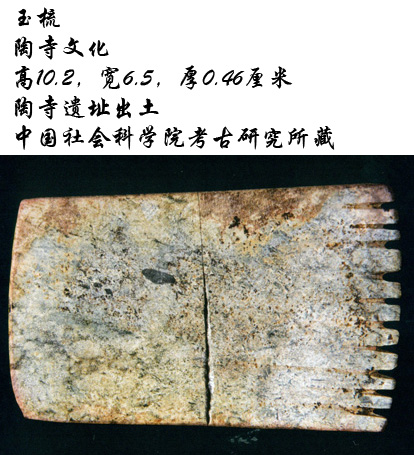 玉梳
陶寺文化
高10.2，宽6.5，厚0.46厘米
陶寺遗址出土
中国社会科学院考古研究所藏